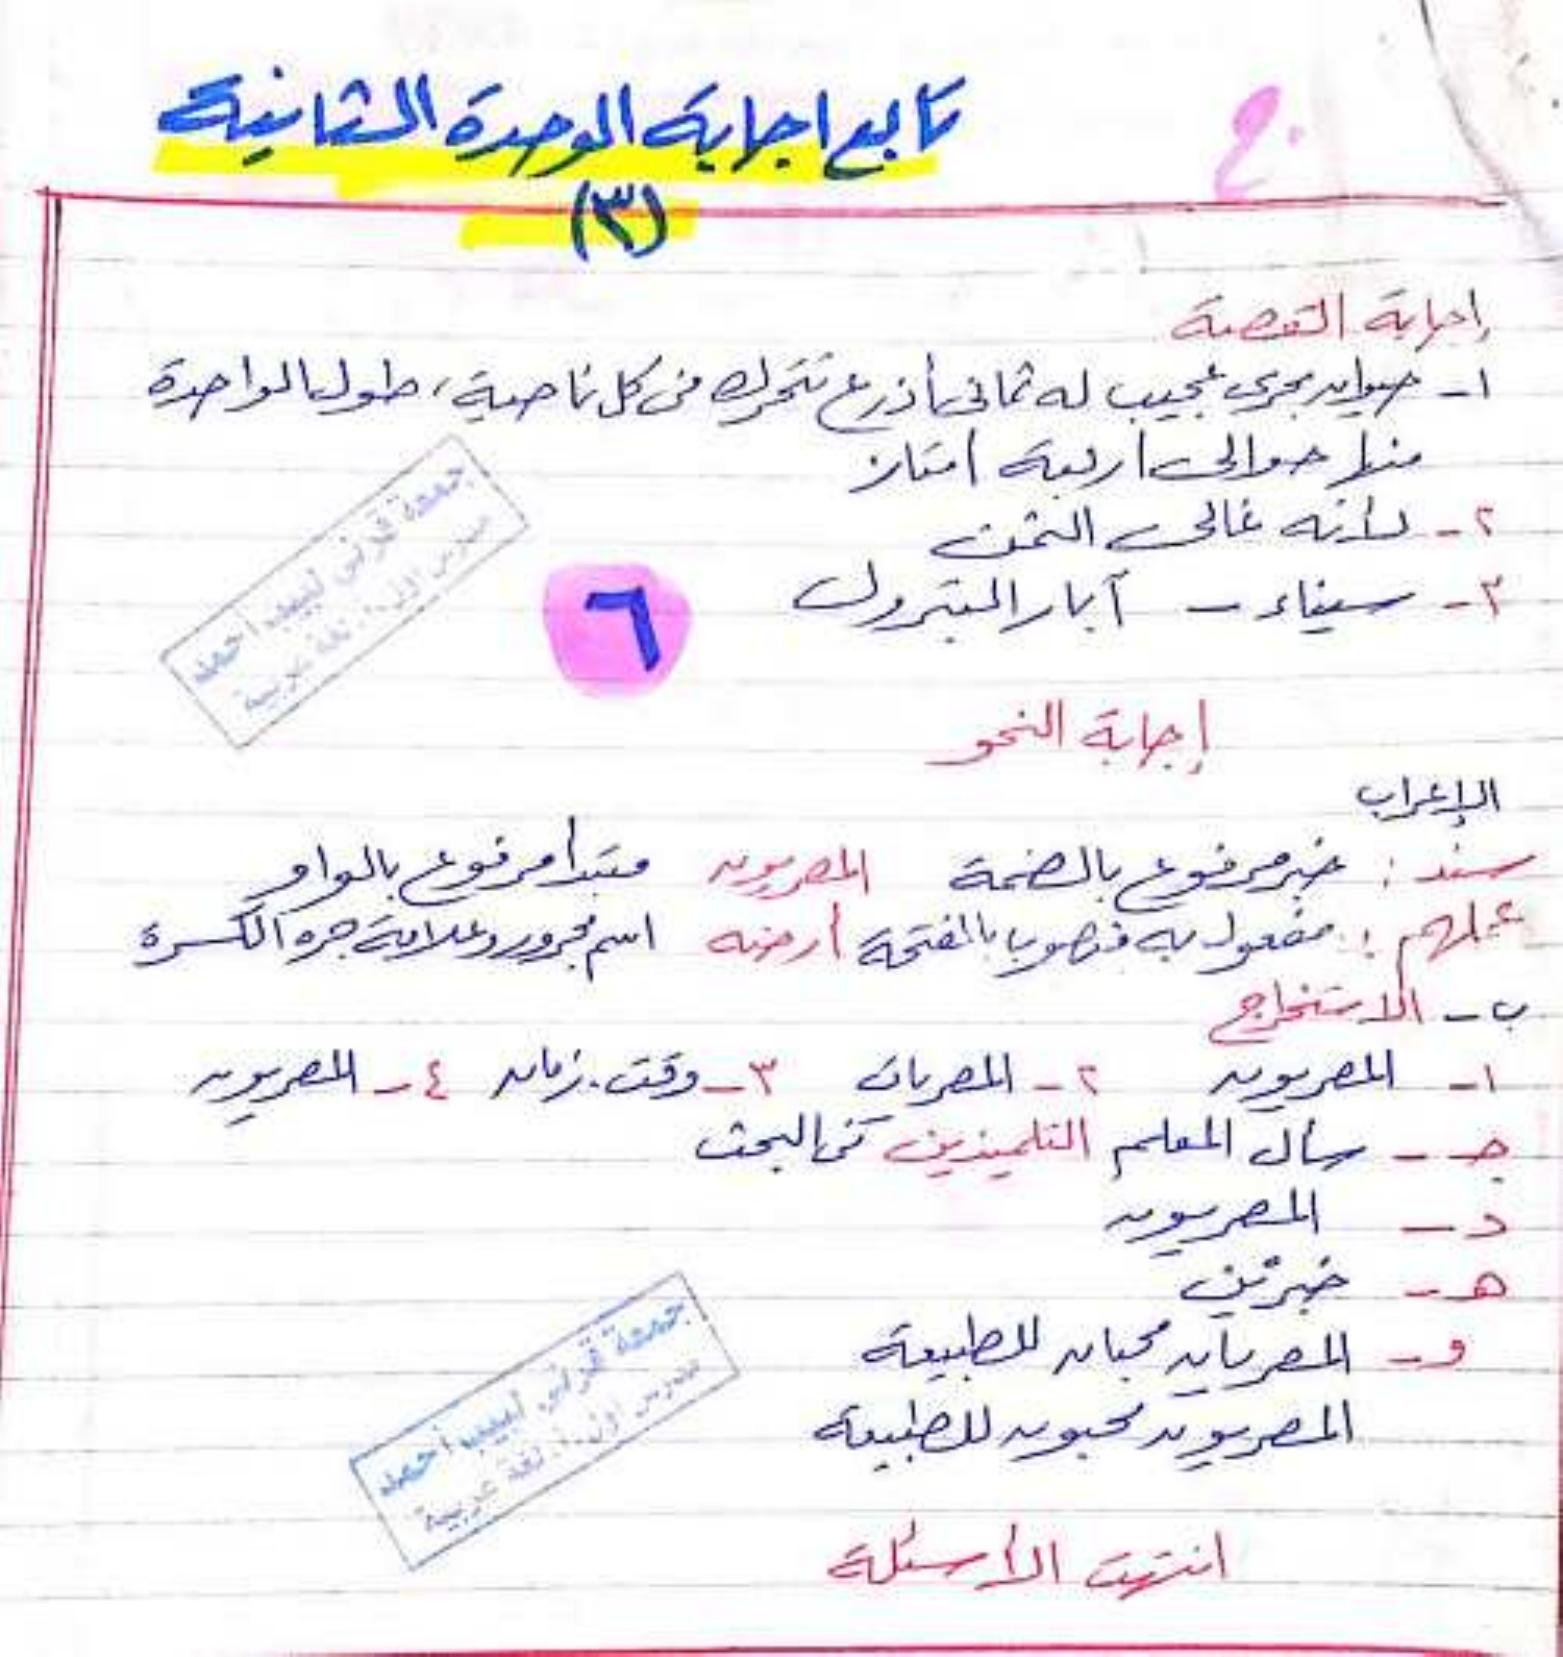 تابع اجابة الوحدة الثانية
(٣)
إجابة القصة
١- حيوان بحرى عجيب له ثمانى أذرع تتحرك فى كل ناحية، طول الواحدة
منها حوالى أربعة أمتار
٢- لأنه غالى الثمن
٣- سيناء - آبار البترول
٦
إجابة النحو
الإعراب
سند: خبر مرفوع بالضمة المصريون مبتدأ مرفوع بالواو
عملهم: مفعول به منصوب بالفتحة أرضه اسم مجرور وعلامة جره الكسرة
ب- الاستخراج
١- المصريون ٢- المصريات ٣- وقت. زمان ٤- المصريون
جـ - سأل المعلم التلميذين عن البحث
د - المصريون
هـ - خبرتين
و - المصريان محبان للطبيعة
المصريون محبون للطبيعة
انتهت الأسئلة
جمعة قرنى لبيب أحمد
مدرس أول أ. لغة عربية
جمعة قرنى لبيب أحمد
مدرس أول أ. لغة عربية